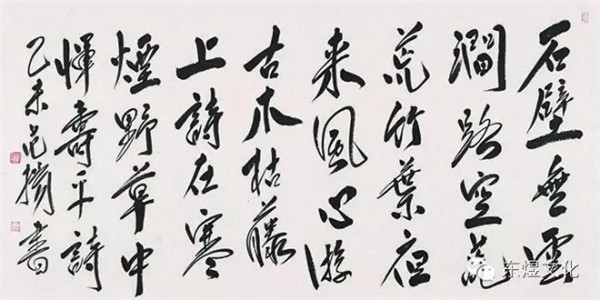 石壁無雲
澗路空荒
荒竹葉夜
来風心游
古木枯藤
上詩在寒
煙野草中
惲壽平詩
己未范書
东煜文化